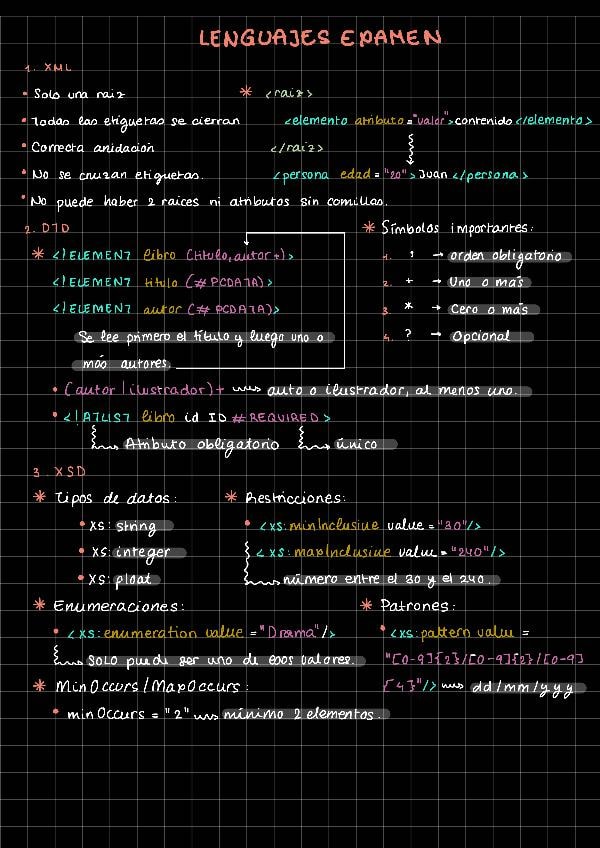 LENGUAJES EXAMEN
1. XML
• Solo una raiz * <raiz>
• Todas las etiquetas se cierran <elemento atributo="valor">contenido</elemento>
• Correcta anidación </raiz>
• No se cruzan etiquetas. <persona edad="20">Juan</persona>
• No puede haber 2 raices ni atributos sin comillas.
2. DTD * Símbolos importantes:
* <!ELEMENT libro (titulo,autor+)> 1. , → orden obligatorio
<!ELEMENT titulo (#PCDATA)> 2. + → Uno o más
<!ELEMENT autor (#PCDATA)> 3. * → Cero o más
Se lee primero el título y luego uno o 4. ? → Opcional
más autores
• (autor|ilustrador)+ auto o ilustrador, al menos uno.
• <!ATLIST libro id ID #REQUIRED>
Atributo obligatorio único
3. XSD
* Tipos de datos: * Restricciones:
• XS: string • <xs:minInclusive value="30"/>
• XS: integer <xs:maxInclusive value="240"/>
• XS: float número entre el 30 y el 240.
* Enumeraciones: * Patrones:
• <xs:enumeration value="Drama"/> • <xs:pattern value=
SOLO puede ser uno de esos valores. "[0-9]{2}/[0-9]{2}/[0-9]
* MinOccurs/MaxOccurs: {4}"/> dd/mm/yyy
• minOccurs="2" mínimo 2 elementos.